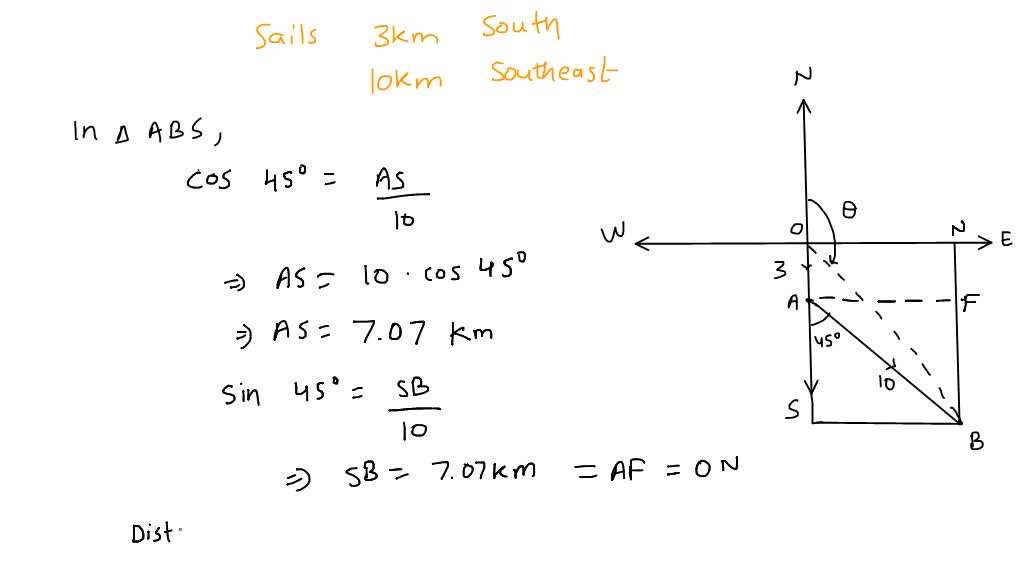 Sails 3km South
10km Southeast
In Δ ABS,
cos 45° = AS/10
⇒ AS = 10 · cos 45°
⇒ AS = 7.07 km
Sin 45° = SB/10
⇒ SB = 7.07km = AF = ON
Dist.
N
θ
O
W
N
E
3
A
F
45°
10
S
B